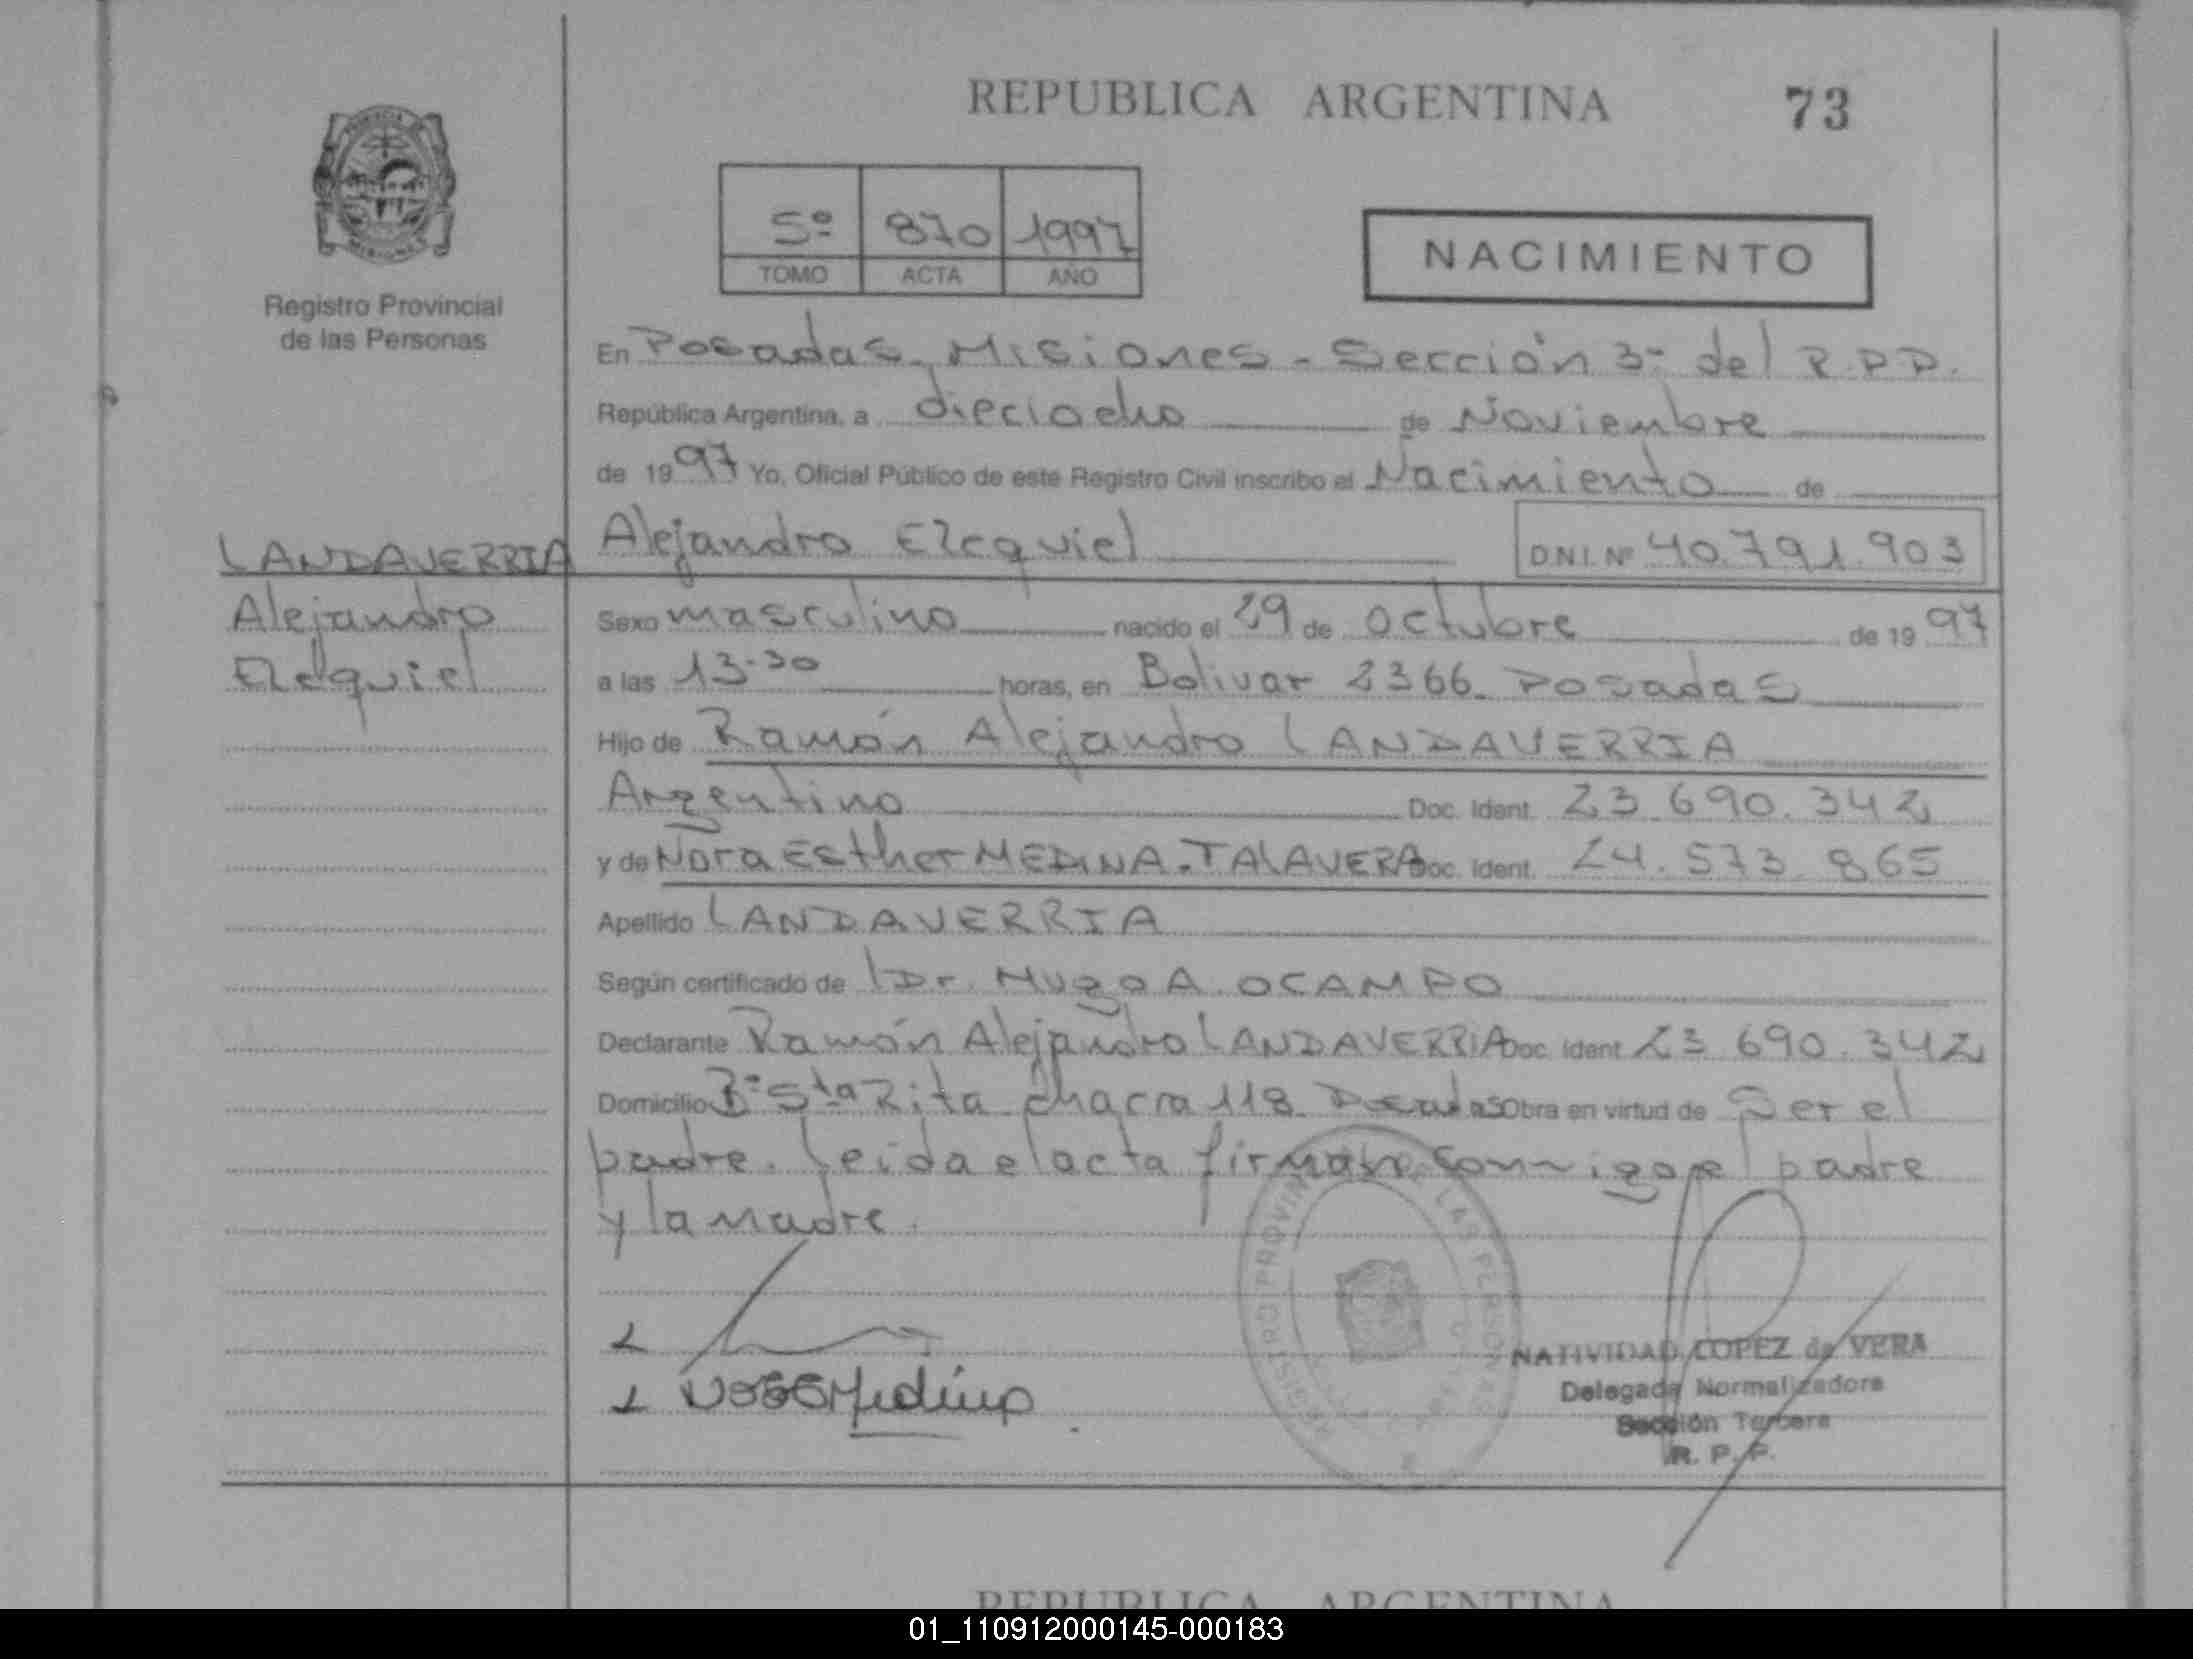 REPUBLICA ARGENTINA 73
5º 870 1997
TOMO ACTA AÑO
NACIMIENTO
Registro Provincial
de las Personas
En Posadas, Misiones - Sección 3ª del R.P.P.
República Argentina, a dieciocho de Noviembre
de 1997 Yo, Oficial Público de este Registro Civil inscribo el Nacimiento de
LANDAVERRIA
Alejandro
Ezequiel
Alejandro Ezequiel D.N.I. Nº 40.791.903
Sexo masculino nacido el 29 de Octubre de 1997
a las 13.30 horas, en Bolivar 2366. Posadas
Hijo de Ramón Alejandro LANDAVERRIA
Argentino Doc. Ident. 23.690.342
y de Nora Esther MEDINA.TALAVERA Doc. Ident. 24.573.865
Apellido LANDAVERRIA
Según certificado de Dr. Hugo A. OCAMPO
Declarante Ramón Alejandro LANDAVERRIA Doc. Ident 23.690.342
Domicilio Bº Sta Rita chacra 118. Posadas Obra en virtud de Ser el
padre. Leida el acta firman conmigo el padre
y la madre.
REGISTRO PROVINCIAL DE LAS PERSONAS
Medina
NATIVIDAD LOPEZ de VERA
Delegada Normalizadora
Sección Tercera
R. P. P.
REPUBLICA ARGENTINA
01_110912000145-000183